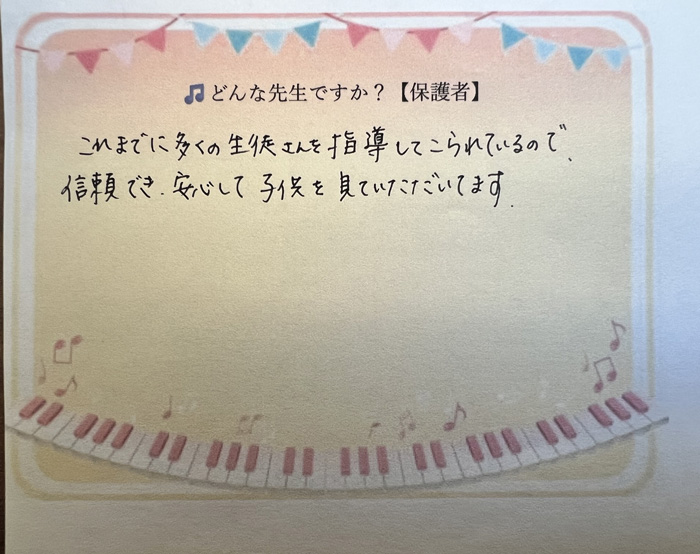 🎵どんな先生ですか？【保護者】
これまでに多くの生徒さんを指導してこられているので、
信頼でき、安心して子供を見ていただいてます。